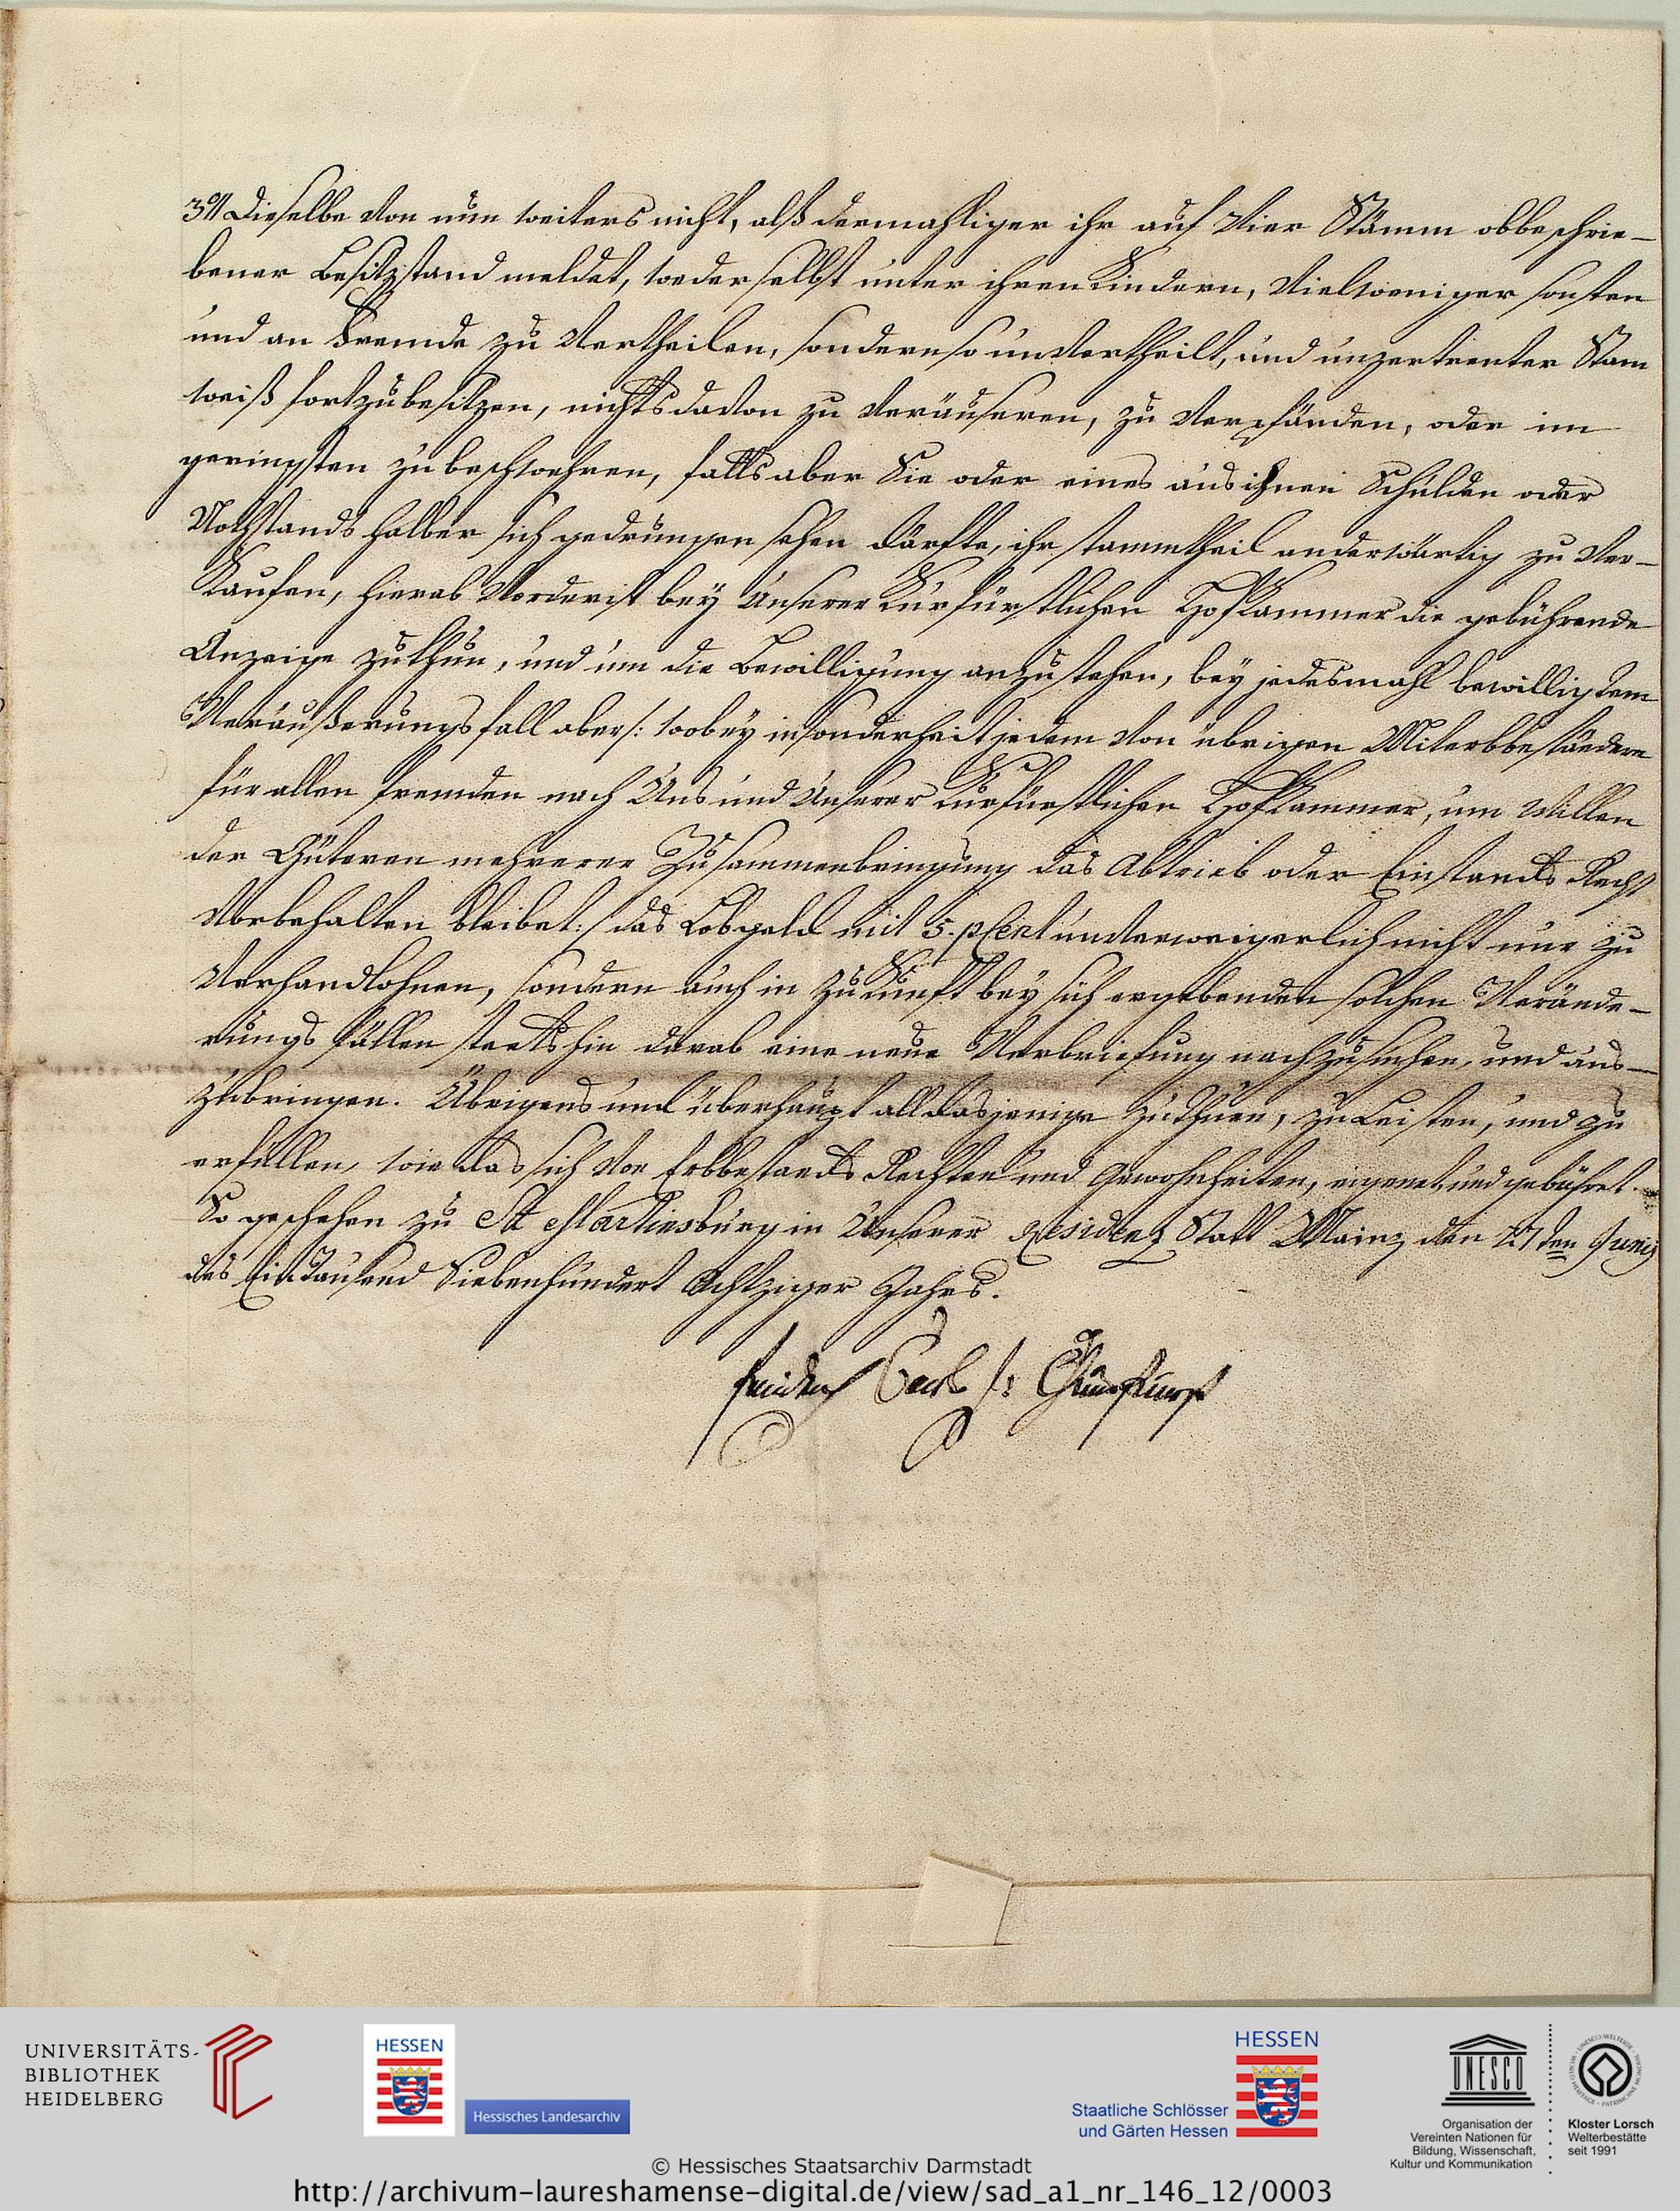 3o// Dieselbe von nun weiters nicht, alß dermahliger ihr auf vier Stämm obbeschrie-
bener Besitzstand meldet, weder selbst unter ihren Kindern, vielweniger sonsten
und an Fremde zu vertheilen, sondern so unvertheilt, und unzertrenter Stam
weiß fortzubesitzen, nichts davon zu veräuseren, zu verpfänden, oder im
geringsten zu beschwehren, falls aber Sie oder eines aus ihnen Schulden oder
Nothstands halber sich gedrungen sehen därfte, ihr stammtheil anderwärtig zu ver-
Kaufen, hierab Vorderist bey Unserer Kurfürstlichen Hofkammer die gebührende
Anzeige zu thun, und um die Bewilligung anzustehen, bey jedesmahl bewilligtem
Veräußerungsfall aber /: wobey insonderheit jedem von übrigen Miterbbeständern
für allen fremden nach Uns und Unserer Kurfürstlichen Hofkammer, um willen
der Güteren mehrerer Zusammenbringung das Abtrieb oder Einstands Recht
Vorbehalten bleibet :/ das Lobgeld mit 5. pCent unverweigerlich nicht nur zu
Verhandlohnen, sondern auch in Zukunft bey sich ergebenden solchen Verände-
rungs fällen staetshin darab eine neue Verbriefung nachzusuchen, und aus-
zubringen. Übrigens und überhaupt all dasjenige zu thuen, zu Leisten, und zu
erfüllen, wie das sich von Erbbestands Rechten und Gewohnheiten, eignet und gebühret.
So geschehen zu St Martinsburg in Unserer Residenz Statt Mainz den 27ten Junij
des Eintausend Siebenhundert Achtziger Jahrs.
Friderich Carl /: Churfürst
UNIVERSITÄTS-
BIBLIOTHEK
HEIDELBERG
HESSEN
Hessisches Landesarchiv
HESSEN
Staatliche Schlösser
und Gärten Hessen
UNESCO
Organisation der
Vereinten Nationen für
Bildung, Wissenschaft,
Kultur und Kommunikation
Kloster Lorsch
Welterbestätte
seit 1991
© Hessisches Staatsarchiv Darmstadt
http://archivum-laureshamense-digital.de/view/sad_a1_nr_146_12/0003